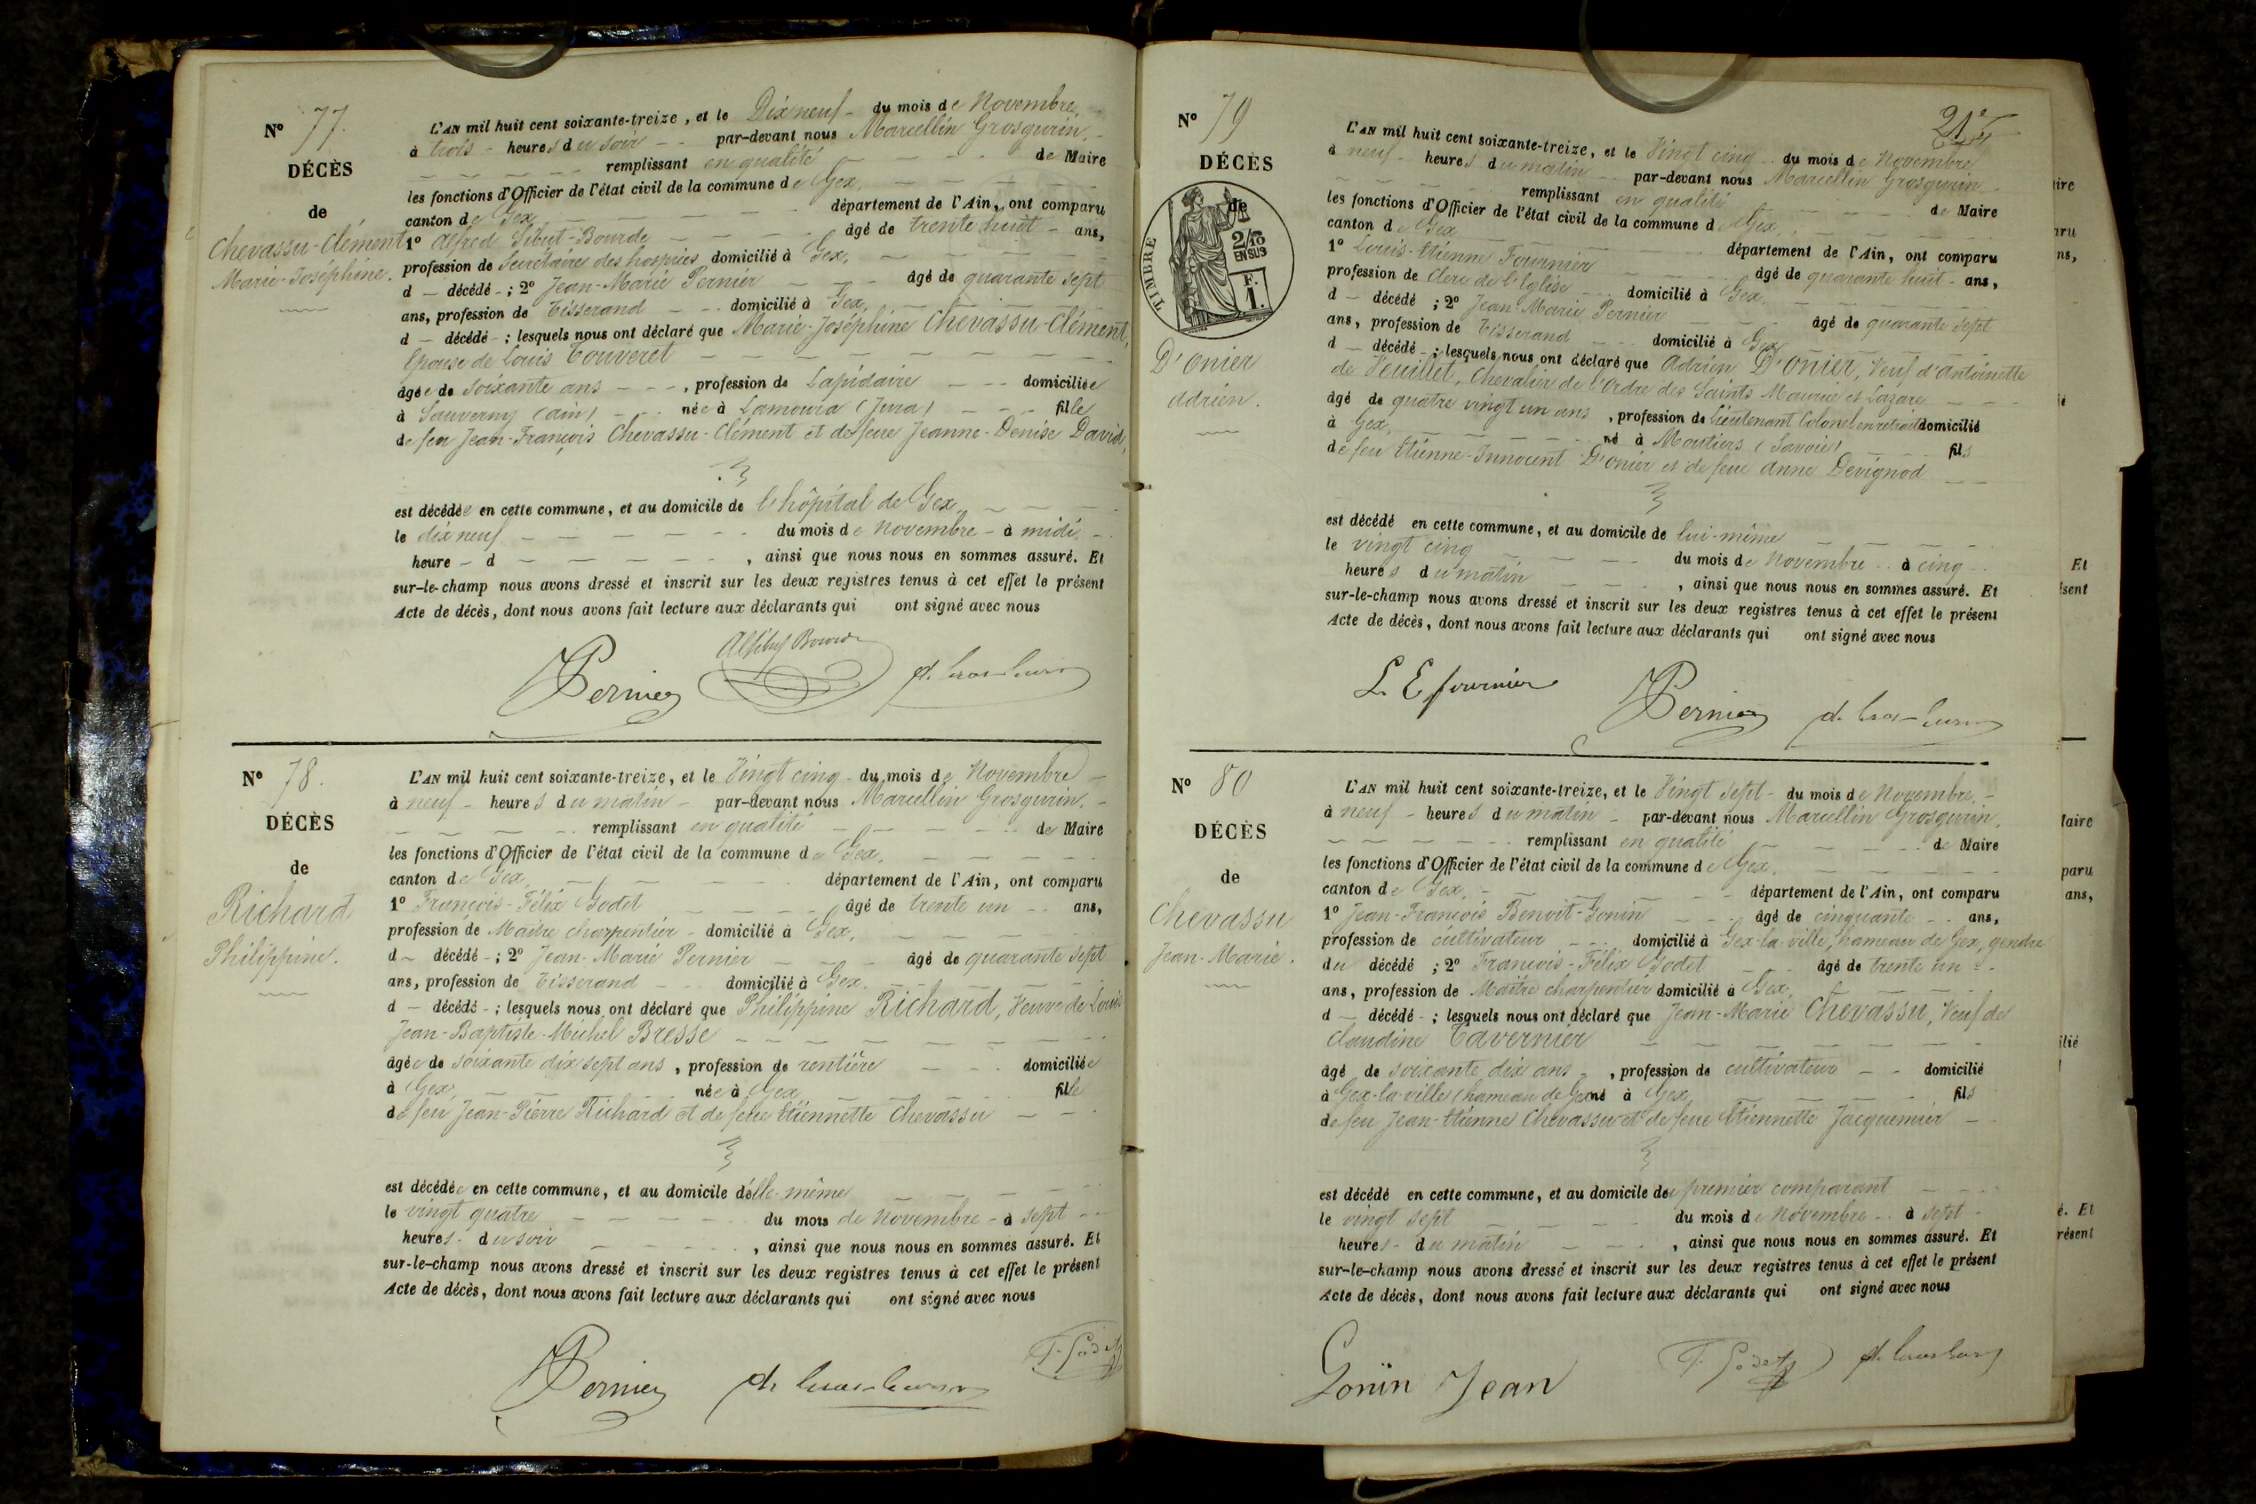 N° 77.
DÉCÈS
de
Chevassu-Clément
Marie-Joséphine.
L'AN mil huit cent soixante-treize, et le Dix neuf du mois de Novembre
à trois heures du soir par-devant nous Marcellin Grosgurin
remplissant en qualité de Maire
les fonctions d'Officier de l'état civil de la commune de Gex
canton de Gex département de l'Ain, ont comparu
1° Alfred Sibut-Bourde âgé de trente huit ans,
profession de Secrétaire des hospices domicilié à Gex,
d décédé ; 2° Jean-Marie Pernier âgé de quarante sept
ans, profession de Tisserand domicilié à Gex,
d décédé ; lesquels nous ont déclaré que Marie-Joséphine Chevassu-Clément,
Epouse de Louis Touveret
âgée de soixante ans, profession de Lapidaire domiciliée
à Sauverny (ain) née à Lamoura (Jura) fille
de feu Jean-François Chevassu-Clément et de feue Jeanne-Denise David,
est décédée en cette commune, et au domicile de l'hôpital de Gex
le dix neuf du mois de Novembre à midi
heure d , ainsi que nous nous en sommes assuré. Et
sur-le-champ nous avons dressé et inscrit sur les deux registres tenus à cet effet le présent
Acte de décès, dont nous avons fait lecture aux déclarants qui ont signé avec nous
Pernier
N° 78.
DÉCÈS
de
Richard
Philippine.
L'AN mil huit cent soixante-treize, et le Vingt cinq du mois de Novembre
à neuf heures du matin par-devant nous Marcellin Grosgurin.
remplissant en qualité de Maire
les fonctions d'Officier de l'état civil de la commune de Gex.
canton de Gex département de l'Ain, ont comparu
1° François-Félix Godet âgé de trente un ans,
profession de Maître charpentier domicilié à Gex,
d décédé ; 2° Jean-Marie Pernier âgé de quarante sept
ans, profession de Tisserand domicilié à Gex
d décédé ; lesquels nous ont déclaré que Philippine Richard, Veuve de Louis
Jean-Baptiste-Michel Bresse
âgée de soixante dix sept ans, profession de rentière domiciliée
à Gex, née à Gex fille
de feu Jean-Pierre Richard et de feue Etiennette Chevassu
est décédée en cette commune, et au domicile d'elle-même
le vingt quatre du mois de Novembre à sept
heures du soir , ainsi que nous nous en sommes assuré. Et
sur-le-champ nous avons dressé et inscrit sur les deux registres tenus à cet effet le présent
Acte de décès, dont nous avons fait lecture aux déclarants qui ont signé avec nous
Pernier F. Godet
21e
N° 79
DÉCÈS
de
TIMBRE
2/10
EN SUS
F.
1.
D'Onier
Adrien.
L'AN mil huit cent soixante-treize, et le Vingt cinq du mois de Novembre
à neuf heures du matin par-devant nous Marcellin Grosgurin
remplissant en qualité de Maire
les fonctions d'Officier de l'état civil de la commune de Gex,
canton de Gex département de l'Ain, ont comparu
1° Louis-Etienne Fournier âgé de quarante huit ans,
profession de Clerc de l'Eglise domicilié à Gex
d décédé ; 2° Jean-Marie Pernier âgé de quarante sept
ans, profession de Tisserand domicilié à Gex
d décédé ; lesquels nous ont déclaré que Adrien D'Onier, Veuf d'Antoinette
de Veuillet, Chevalier de l'Ordre des Saints Maurice et Lazare
âgé de quatre vingt un ans, profession de Lieutenant Colonel en retraite domicilié
à Gex, né à Moutiers (Savoie) fils
de feu Etienne-Innocent D'Onier et de feue Anne Devignod
est décédé en cette commune, et au domicile de lui-même
le vingt cinq du mois de Novembre à cinq
heures du matin , ainsi que nous nous en sommes assuré. Et
sur-le-champ nous avons dressé et inscrit sur les deux registres tenus à cet effet le présent
Acte de décès, dont nous avons fait lecture aux déclarants qui ont signé avec nous
L. E. fournier Pernier
N° 80
DÉCÈS
de
Chevassu
Jean-Marie.
L'AN mil huit cent soixante-treize, et le Vingt sept du mois de Novembre
à neuf heures du matin par-devant nous Marcellin Grosgurin,
remplissant en qualité de Maire
les fonctions d'Officier de l'état civil de la commune de Gex,
canton de Gex, département de l'Ain, ont comparu
1° Jean-François Benoit-Gonin âgé de cinquante ans,
profession de cultivateur domicilié à Gex-la-ville, hameau de Gex, gendre
du décédé ; 2° François-Félix Godet âgé de trente un
ans, profession de Maître charpentier domicilié à Gex,
d décédé ; lesquels nous ont déclaré que Jean-Marie Chevassu, Veuf de
Claudine Tavernier
âgé de soixante dix ans, profession de cultivateur domicilié
à Gex-la-ville (hameau de Gex né à Gex fils
de feu Jean-Etienne Chevassu et de feue Etiennette Jacquemier
est décédé en cette commune, et au domicile du premier comparant
le vingt sept du mois de Novembre à sept
heures du matin , ainsi que nous nous en sommes assuré. Et
sur-le-champ nous avons dressé et inscrit sur les deux registres tenus à cet effet le présent
Acte de décès, dont nous avons fait lecture aux déclarants qui ont signé avec nous
Gonin Jean F. Godet